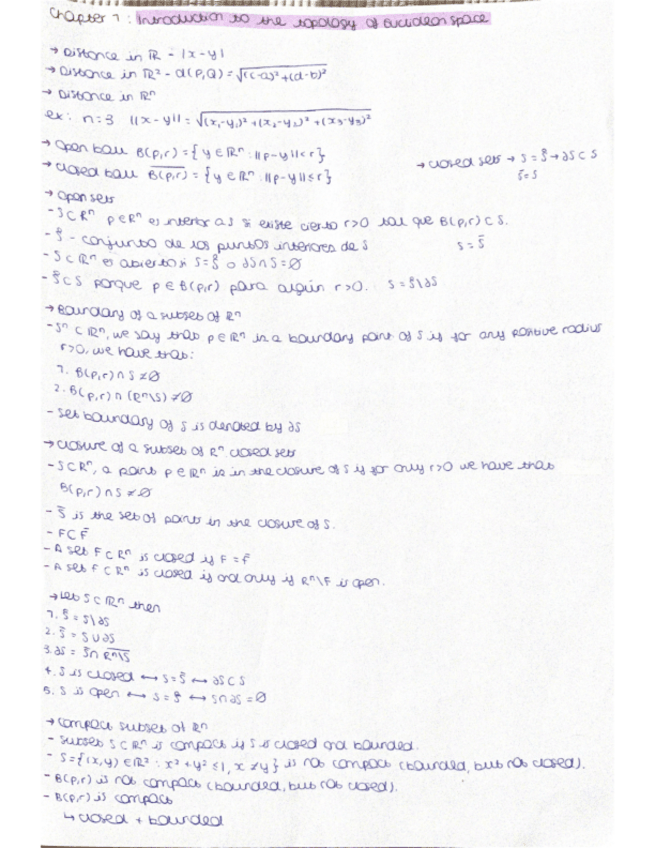 Chapter 1: Introduction to the topology of Euclidean space
→ Distance in ℝ - |x-y|
→ Distance in ℝ² - d(P,Q) = √((c-a)²+(d-b)²)
→ Distance in ℝⁿ
ex: n=3 ||x-y|| = √((x₁-y₁)²+(x₂-y₂)²+(x₃-y₃)²)
→ Open ball B(p,r) = {y∈ℝⁿ : ||p-y||<r}
→ Closed ball B̅(̅p̅,̅r̅)̅ = {y∈ℝⁿ : ||p-y||≤r}
→ closed sets → S = S̊ → ∂S ⊂ S
S̅=S
→ Open sets
- S⊂ℝⁿ p∈ℝⁿ es interior a S si existe cierto r>0 tal que B(p,r)⊂S.
- S̊ - conjunto de los puntos interiores de S S = S̅
- S⊂ℝⁿ es abierto si S=S̊ o ∂S∩S=∅
- S̊⊂S porque p∈B(p,r) para algún r>0. S = S̊\∂S
→ Boundary of a subset of ℝⁿ
- Sⁿ⊂ℝⁿ, we say that p∈ℝⁿ is a boundary point of S if for any positive radius
r>0, we have that:
1. B(p,r)∩S≠∅
2. B(p,r)∩(ℝⁿ\S)≠∅
- Set boundary of S is denoted by ∂S
→ Closure of a subset of ℝⁿ closed sets
- S⊂ℝⁿ, a point p∈ℝⁿ is in the closure of S if for any r>0 we have that
B(p,r)∩S≠∅
- S̅ is the set of points in the closure of S.
- F⊂F̅
- A set F⊂ℝⁿ is closed if F=F̅
- A set F⊂ℝⁿ is closed if and only if ℝⁿ\F is open.
→ Let S⊂ℝⁿ then
1. S̊ = S\∂S
2. S̅ = S∪∂S
3. ∂S = S̅∩ℝ̅ⁿ̅\̅S̅
4. S is closed ↔ S=S̅ ↔ ∂S⊂S
5. S is open ↔ S=S̊ ↔ S∩∂S=∅
→ Compact subset of ℝⁿ
- Subset S⊂ℝⁿ is compact if S is closed and bounded.
- S={(x,y)∈ℝ² : x²+y²≤1, x≠y} is not compact (bounded, but not closed).
- B(p,r) is not compact (bounded, but not closed).
- B(p,r) is compact
↳ closed + bounded